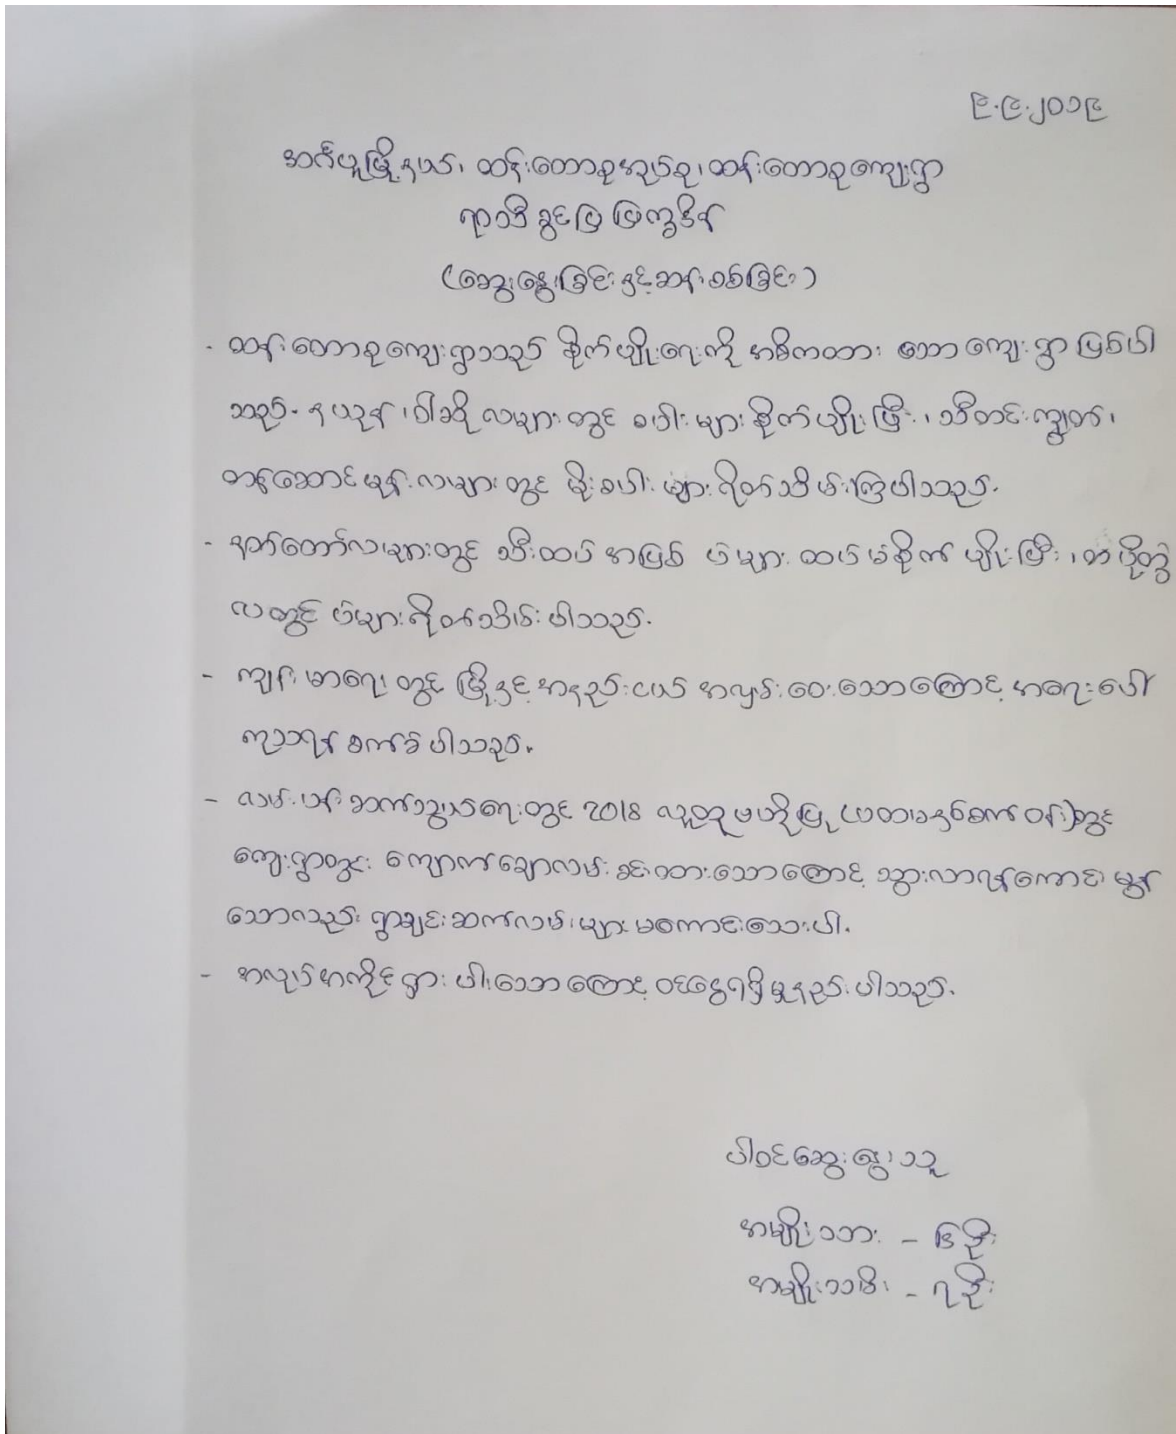 ၉.၉.၂၀၁၉
အင်္ဂပူမြို့နယ်၊ ထန်းတောစုအုပ်စု၊ ထန်းတောစုကျေးရွာ
ရာသီခွင်ပြ ပြက္ခဒိန်
(ဆွေးနွေးခြင်းနှင့်ဆန်းစစ်ခြင်း)
- ထန်းတောစုကျေးရွာသည် စိုက်ပျိုးရေးကို အဓိကထား သော ကျေးရွာ ဖြစ်ပါ
သည်။ နယုန်၊ ဝါဆို လများတွင် စပါးများ စိုက်ပျိုးပြီး၊ သီတင်းကျွတ်၊
တန်ဆောင်မုန်းလများတွင် မိုးစပါးများ ရိတ်သိမ်းကြပါသည်။
- နတ်တော်လများတွင် သီးထပ်အဖြစ် ပဲများ ထပ်မံစိုက်ပျိုးပြီး၊ တပို့တွဲ
လတွင် ပဲများရိတ်သိမ်းပါသည်။
- ကျန်းမာရေးတွင် မြို့နှင့် အနည်းငယ် အလှမ်းဝေးသောကြောင့် အရေးပေါ်
ကုသရန် ခက်ခဲပါသည်။
- လမ်းပန်းဆက်သွယ်ရေးတွင် 2018 လူထုဗဟိုပြု (ပထမနှစ်စက်ဝန်း)တွင်
ကျေးရွာတွင်း ကျောက်ချောလမ်းခင်းထားသောကြောင့် သွားလာရန်ကောင်းမွန်
သော်လည်း ရွာချင်းဆက်လမ်းများ မကောင်းသေးပါ။
- အလုပ်အကိုင်ရှားပါးသောကြောင့် ဝင်ငွေရရှိမှုနည်းပါသည်။
ပါဝင်ဆွေးနွေးသူ
အမျိုးသား - ၆ဦး
အမျိုးသမီး - ၇ဦး